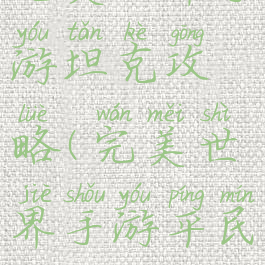 yóu tǎn kè gōng
游坦克攻
lüè wán měi shì
略(完美世
jiè shǒu yóu píng mín
界手游平民